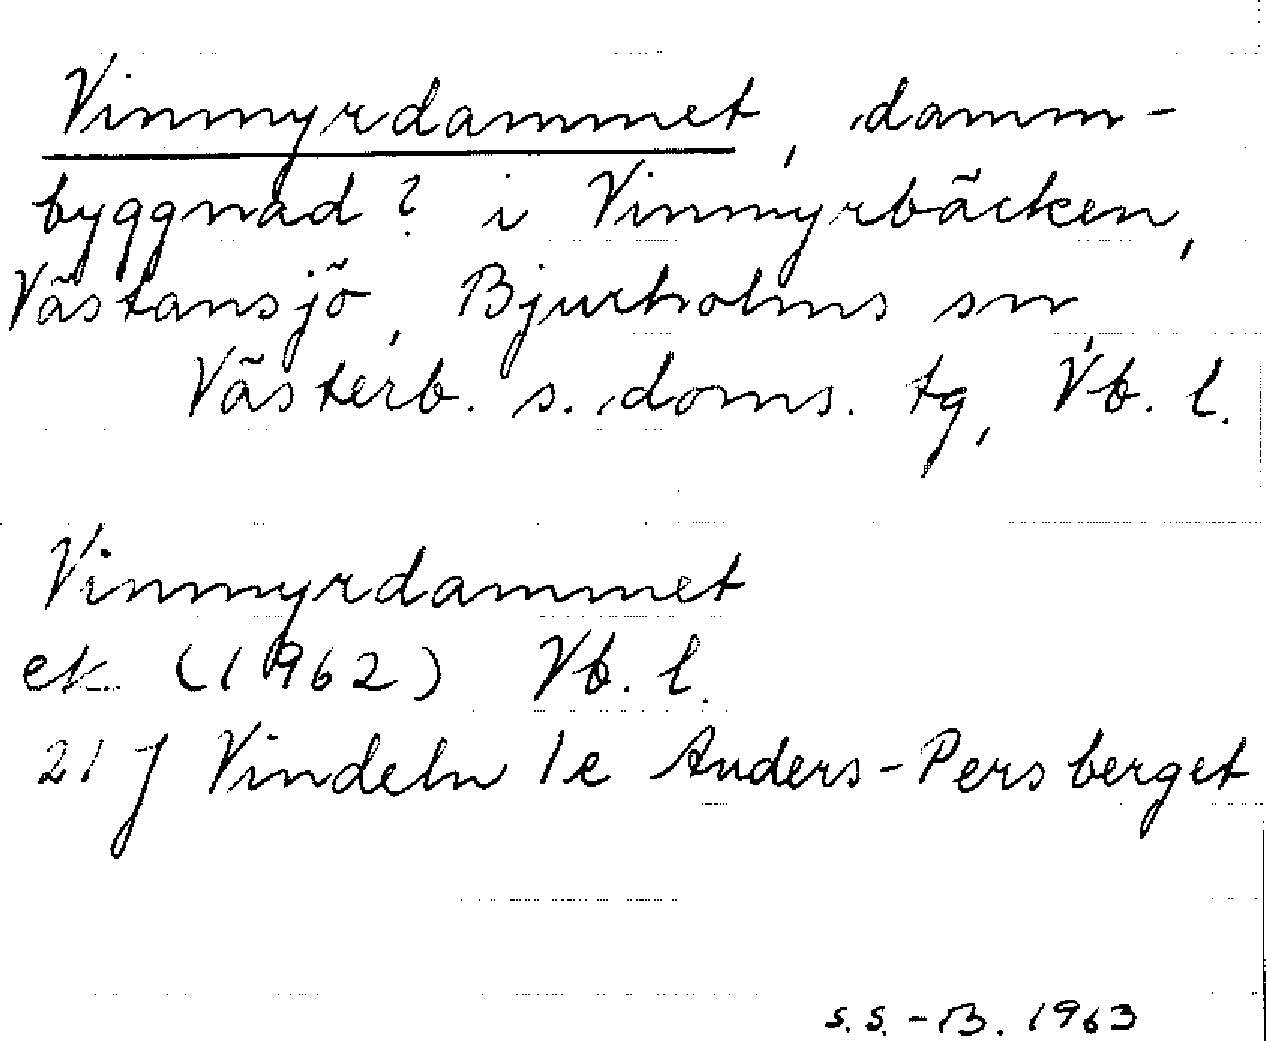 Vinmyrdammet, damm-
byggnad? i Vinmyrbäcken,
Västansjö, Bjurholms sn,
Västerb. s. doms. tg, Vb. l.
Vinmyrdammet
ek (1962) Vb. l.
21 J Vindeln 1e Anders-Persberget
S.S.-B. 1963